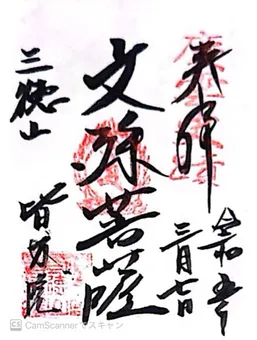 奉拝
令和五年
三月七日
文殊菩薩
三徳山
皆成院
CS CamScanner でスキャン